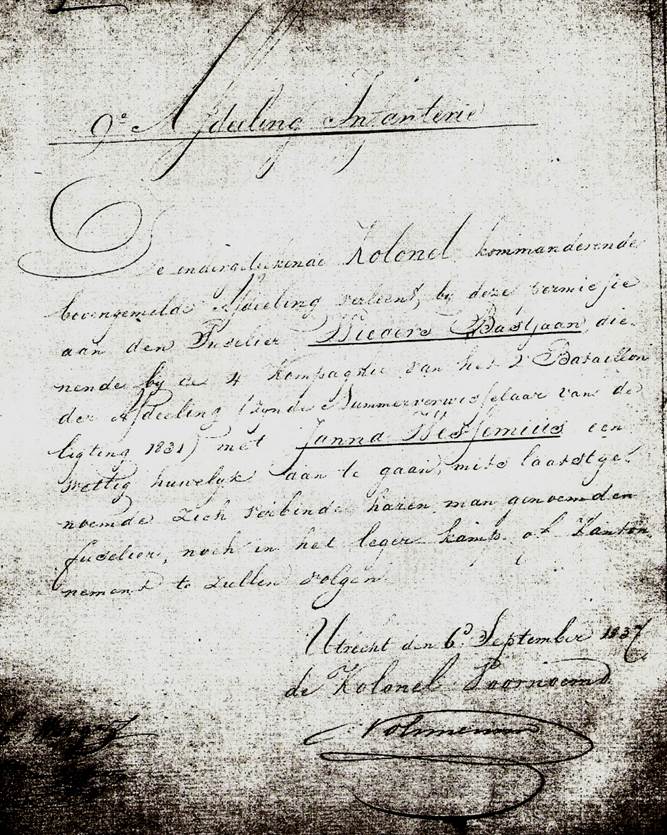 9e Afdeeling Infanterie
De ondergeteekende Kolonel kommanderende
bovengemelde Afdeeling verleent, by deze permissie
aan den Fuselier Wiegers Bastjaan die-
nende by de 4 kompagnie van het 2e Bataillon
der Afdeeling (zonde Nummerverwisselaar van de
ligting 1831) met Janna Wessemius een
wettig huwelyk aan te gaan, mits laatstge-
noemde zich verbinde haren man genoemden
fuselier, noch in het leger kamp of Kanton
nement te zullen volgen
Utrecht den 6d September 1837
de Kolonel Voornoemd